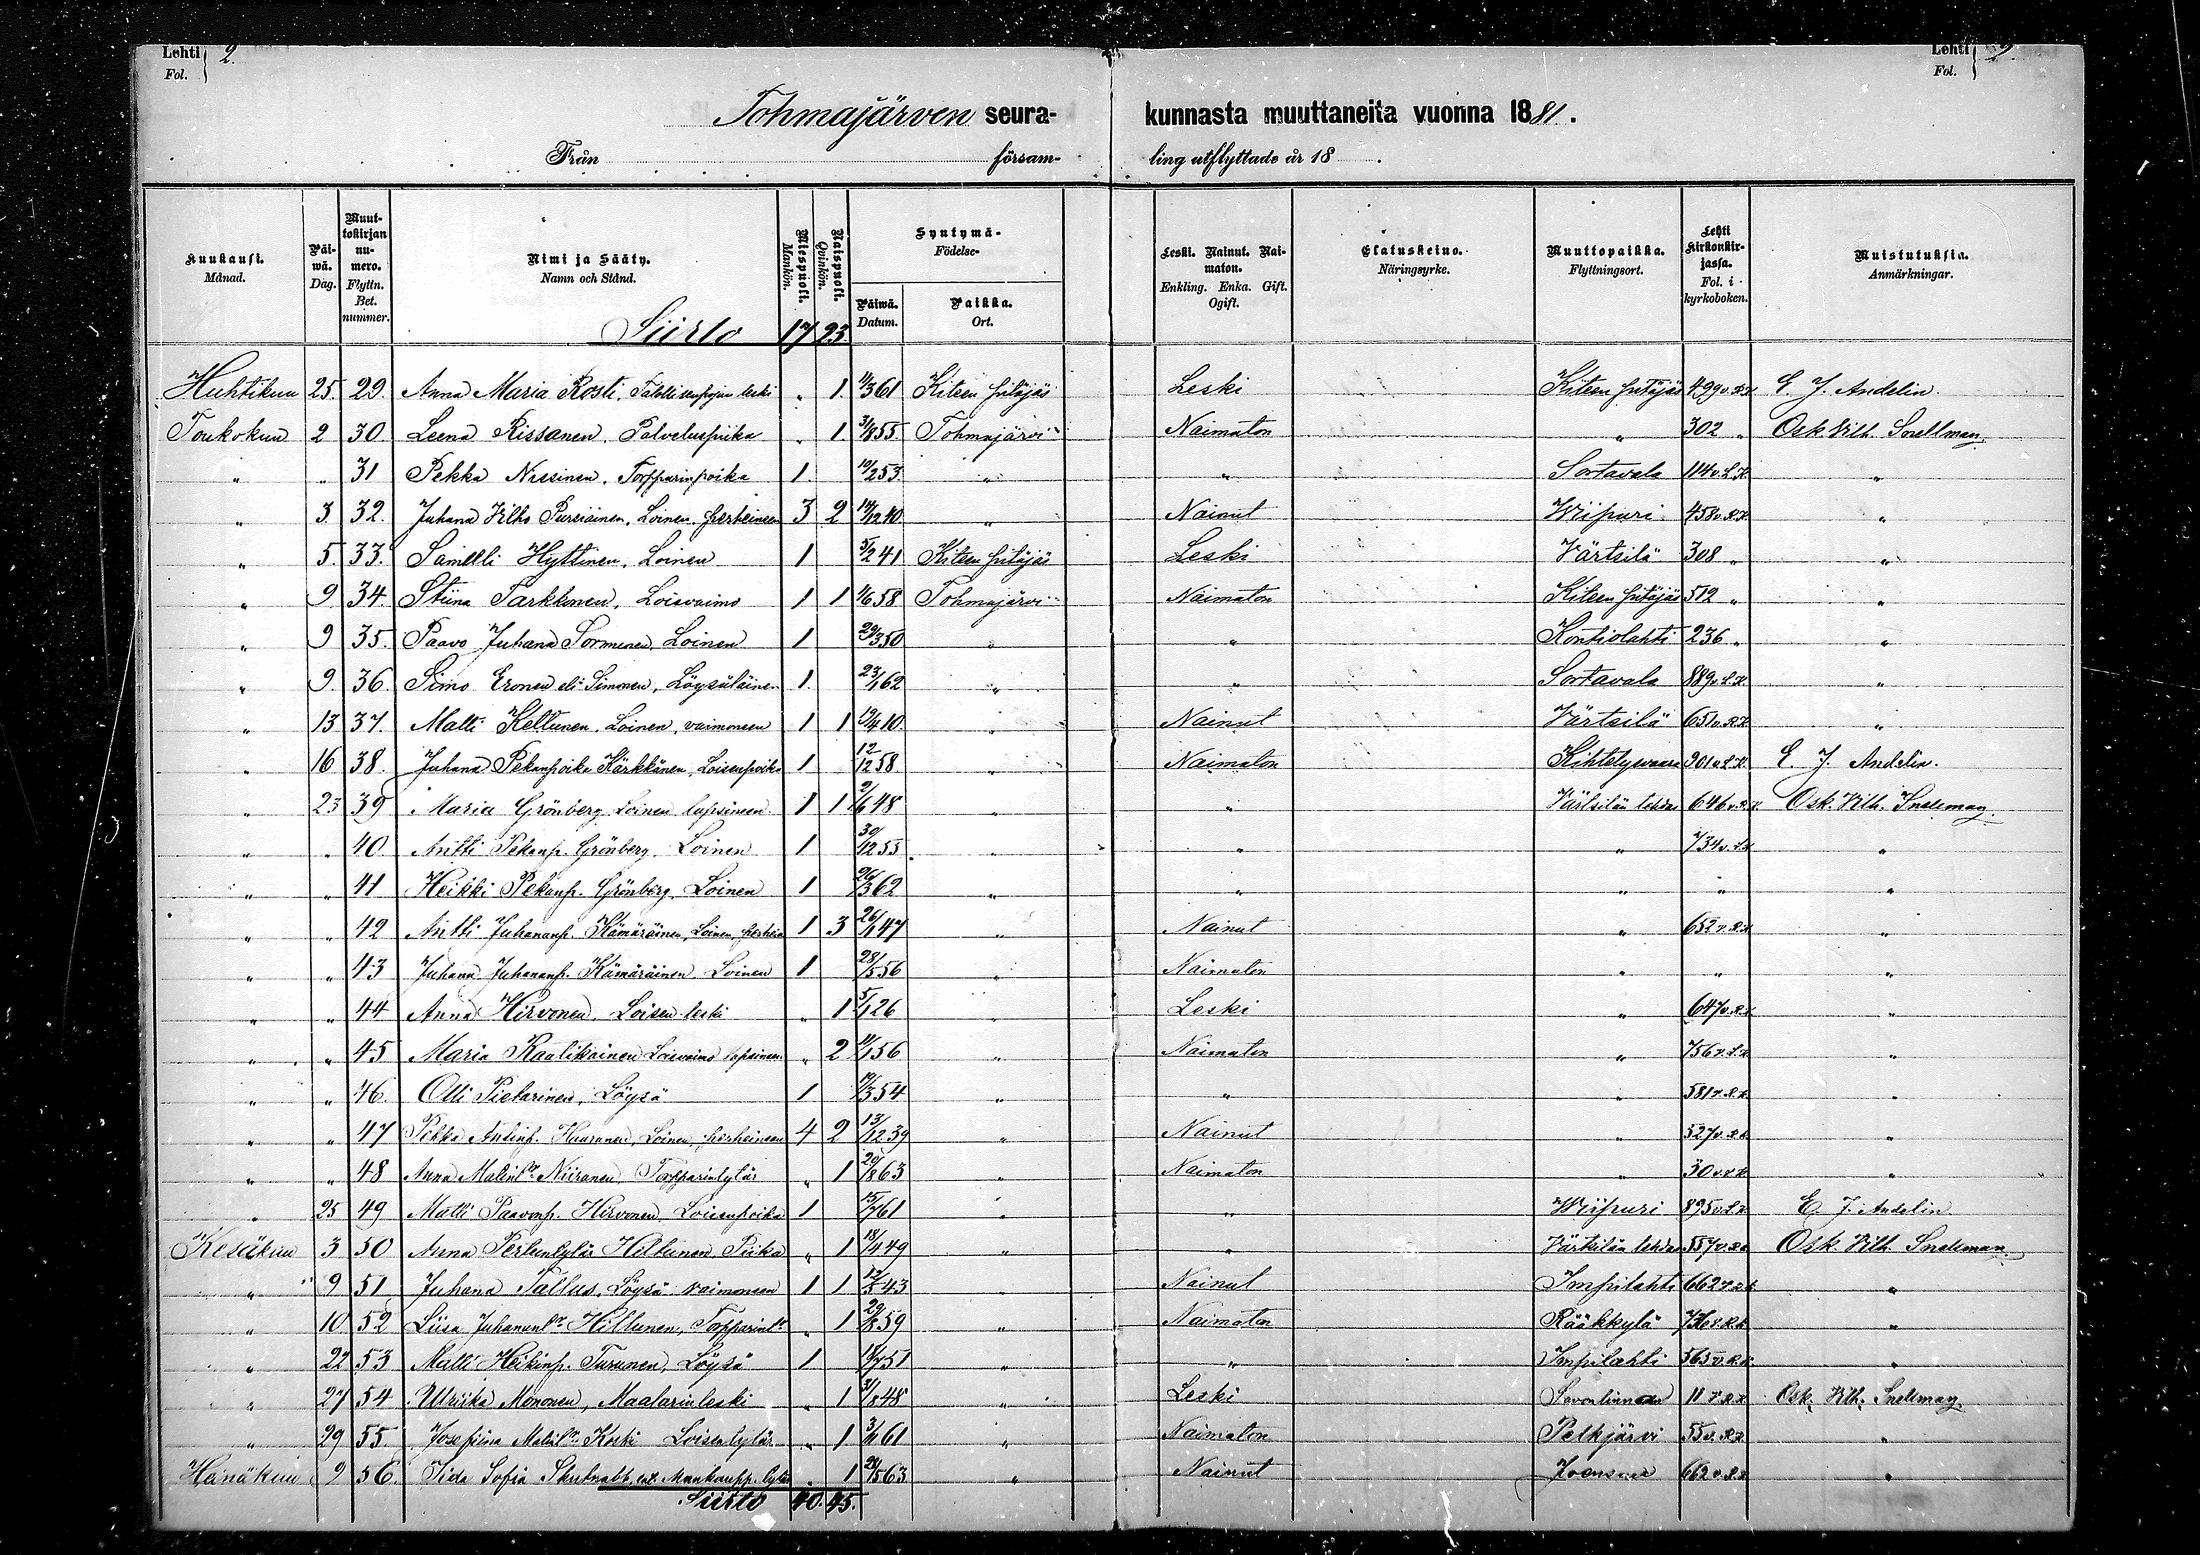 Lehti 2. Lehti 2.
Fol. Fol.
Tohmajärven seura- kunnasta muuttaneita vuonna 1881.
Från försam- ling utflyttade år 18 .
Kuukausi. Månad. Päiwä. Dag. Muuttokirjan numero. Flyttn. Bet. nummer. Nimi ja Sääty. Namn och Stånd. Miespuoli. Mankön. Naispuoli. Qvinkön. Syntymä- Födelse- Päiwä. Datum. Paikka. Ort. Leski. Nainut. Naimaton. Enkling. Enka. Gift. Ogift. Elatuskeino. Näringsyrke. Muuttopaikka. Flyttningsort. Lehti kirkonkirjassa. Fol. i kyrkoboken. Muistutuksia. Anmärkningar.
Siirto 17 23
Huhtikuu 25. 29. Anna Maria Rosti, leski „ 1. 11/3 61 Kiteen pitäjäs Leski Kiteen pitäjäs 499 v. R.K E. J. Andelin.
Toukokuu 2 30. Leena Rissanen, Palveluspiika „ 1 31/8 55. Tohmajärvi Naimaton „ 302 „ Osk. Vilh. Snellman.
„ „ 31 Pekka Nissinen, Torpparinpoika 1. 10/2 53 „ „ Sortavala 114 v. L.K „
„ 3 32. Juhana Vilho Pursiainen, Loinen, perheineen 3 2 14/12 40 „ Nainut Wiipuri 458 v. R.K „
„ 5. 33. Samelli Hyttinen, Loinen 1 5/2 41 Kiteen pitäjäs Leski Värtsilä 308 „ „
„ 9 34. Stiina Parkkonen, Loisvaimo 1 1 1/6 58 Tohmajärvi Naimaton Kiteen pitäjäs 512 „ „
„ 9 35. Paavo Juhana Sormunen, Loinen 1 29/3 50 „ „ Kontiolahti 236 „ „
„ 9. 36. Simo Eronen eli Simonen, Löysäläinen 1. 23/1 62 „ „ Sortavala 889 v. L.K „
„ 13 37. Matti Keltunen, Loinen, vaimoneen 1 1 19/4 10. „ Nainut Värtsilä 651 v. R.K „
„ 16 38. Juhana Pekanpoika Kärkkänen, Loisenpoika 1 12/12 58. „ Naimaton Kihtelyswaara 901 v. L.K. E. J. Andelin.
„ 23 39 Maria Grönberg, Loinen, lapsineen 1 1 2/6 48 „ „ Värtsilän tehdas 646 v. R.K Osk. Vilh. Snellman.
„ „ 40. Antti Pekanp. Grönberg, Loinen 1 30/12 55 „ „ „ 734 v. L.K „
„ „ 41 Heikki Pekanp. Grönberg, Loinen 1 26/3 62 „ „ „ „ „
„ „ 42 Antti Juhananp. Kämäräinen, Loinen, perhein 1 3 26/1 47 „ Nainut „ 652 v. R.K „
„ „ 43 Juhana Juhananp. Kämäräinen, Loinen 1 28/5 56 „ Naimaton „ „ „
„ „ 44 Anna Hirvonen, Loisen leski „ 1 5/1 26 „ Leski „ 647 v. R.K „
„ „ 45 Maria Kaalikainen Loisvaimo lapsineen „ 2 11/1 56 „ Naimaton „ 756 v. L.K „
„ „ 46. Olli Pietarinen, Löysä 1 19/3 54 „ „ „ 581 v. R.K „
„ „ 47 Pekka Antinp. Huuronen, Loinen, perheineen 4 2 13/12 39 „ Nainut „ 527 v. R.K „
„ „ 48 Anna Matint. Niiranen, Torpparintytär „ 1 20/8 63 „ Naimaton „ 30 v. R.K „
„ 25 49 Matti Paavonp. Hirvonen, Loisenpoika 1 15/7 61 „ „ Wiipuri 895 v. L.K E. J. Andelin
Kesäkuu 3 50 Anna Pertuntytär Hiltunen, Piika „ 1 18/4 49 „ „ Värtsilän tehdas 557 v. R.K Osk. Vilh. Snellman.
„ 9 51 Juhana Tallus, Löysä vaimoneen 1 1 43 „ Nainut Impilahti 662 v. R.K „
„ 10 52 Liisa Juhanant. Hiltunen, Torpparint. „ 1 29/8 59 „ Naimaton Rääkkylä „
„ 22 53 Matti Heikinp. Turunen, Löysä 1 51 „ „ Impilahti 565 v. R.K. „
„ 27 54 Ulriika Mononen, Maalarinleski „ 1 31/8 48 „ Leski Savonlinnan 11 v. R.K Osk. Vilh. Snellman.
„ 29 55. Josefiina Matint. Koski Loisentytär „ 1 61 „ Naimaton Pelkjärvi 55 v. R.K „
Heinäkuu 9 56. Iida Sofia „ 1 63 „ Nainut Joensuu 662 v. R.K „
Siirto 40. 45.